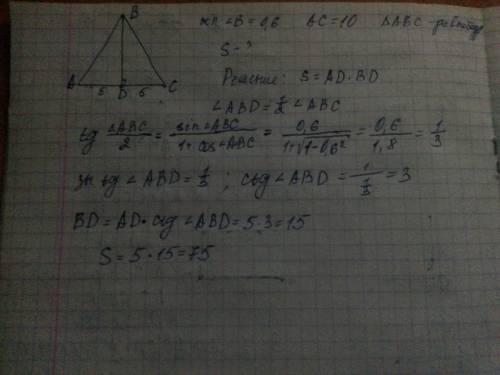 B
sin ∠B = 0,6 AC = 10 ΔABC - равнобедр
S - ?
Решение: S = AD · BD
A 5 D 5 C
∠ABD = 1/2 ∠ABC
tg ∠ABC/2 = sin∠ABC/(1+cos∠ABC) = 0,6/(1+√(1-0,6²)) = 0,6/1,8 = 1/3
зн tg ∠ABD = 1/3 ; ctg ∠ABD = 1/(1/3) = 3
BD = AD · ctg ∠ABD = 5·3 = 15
S = 5 · 15 = 75